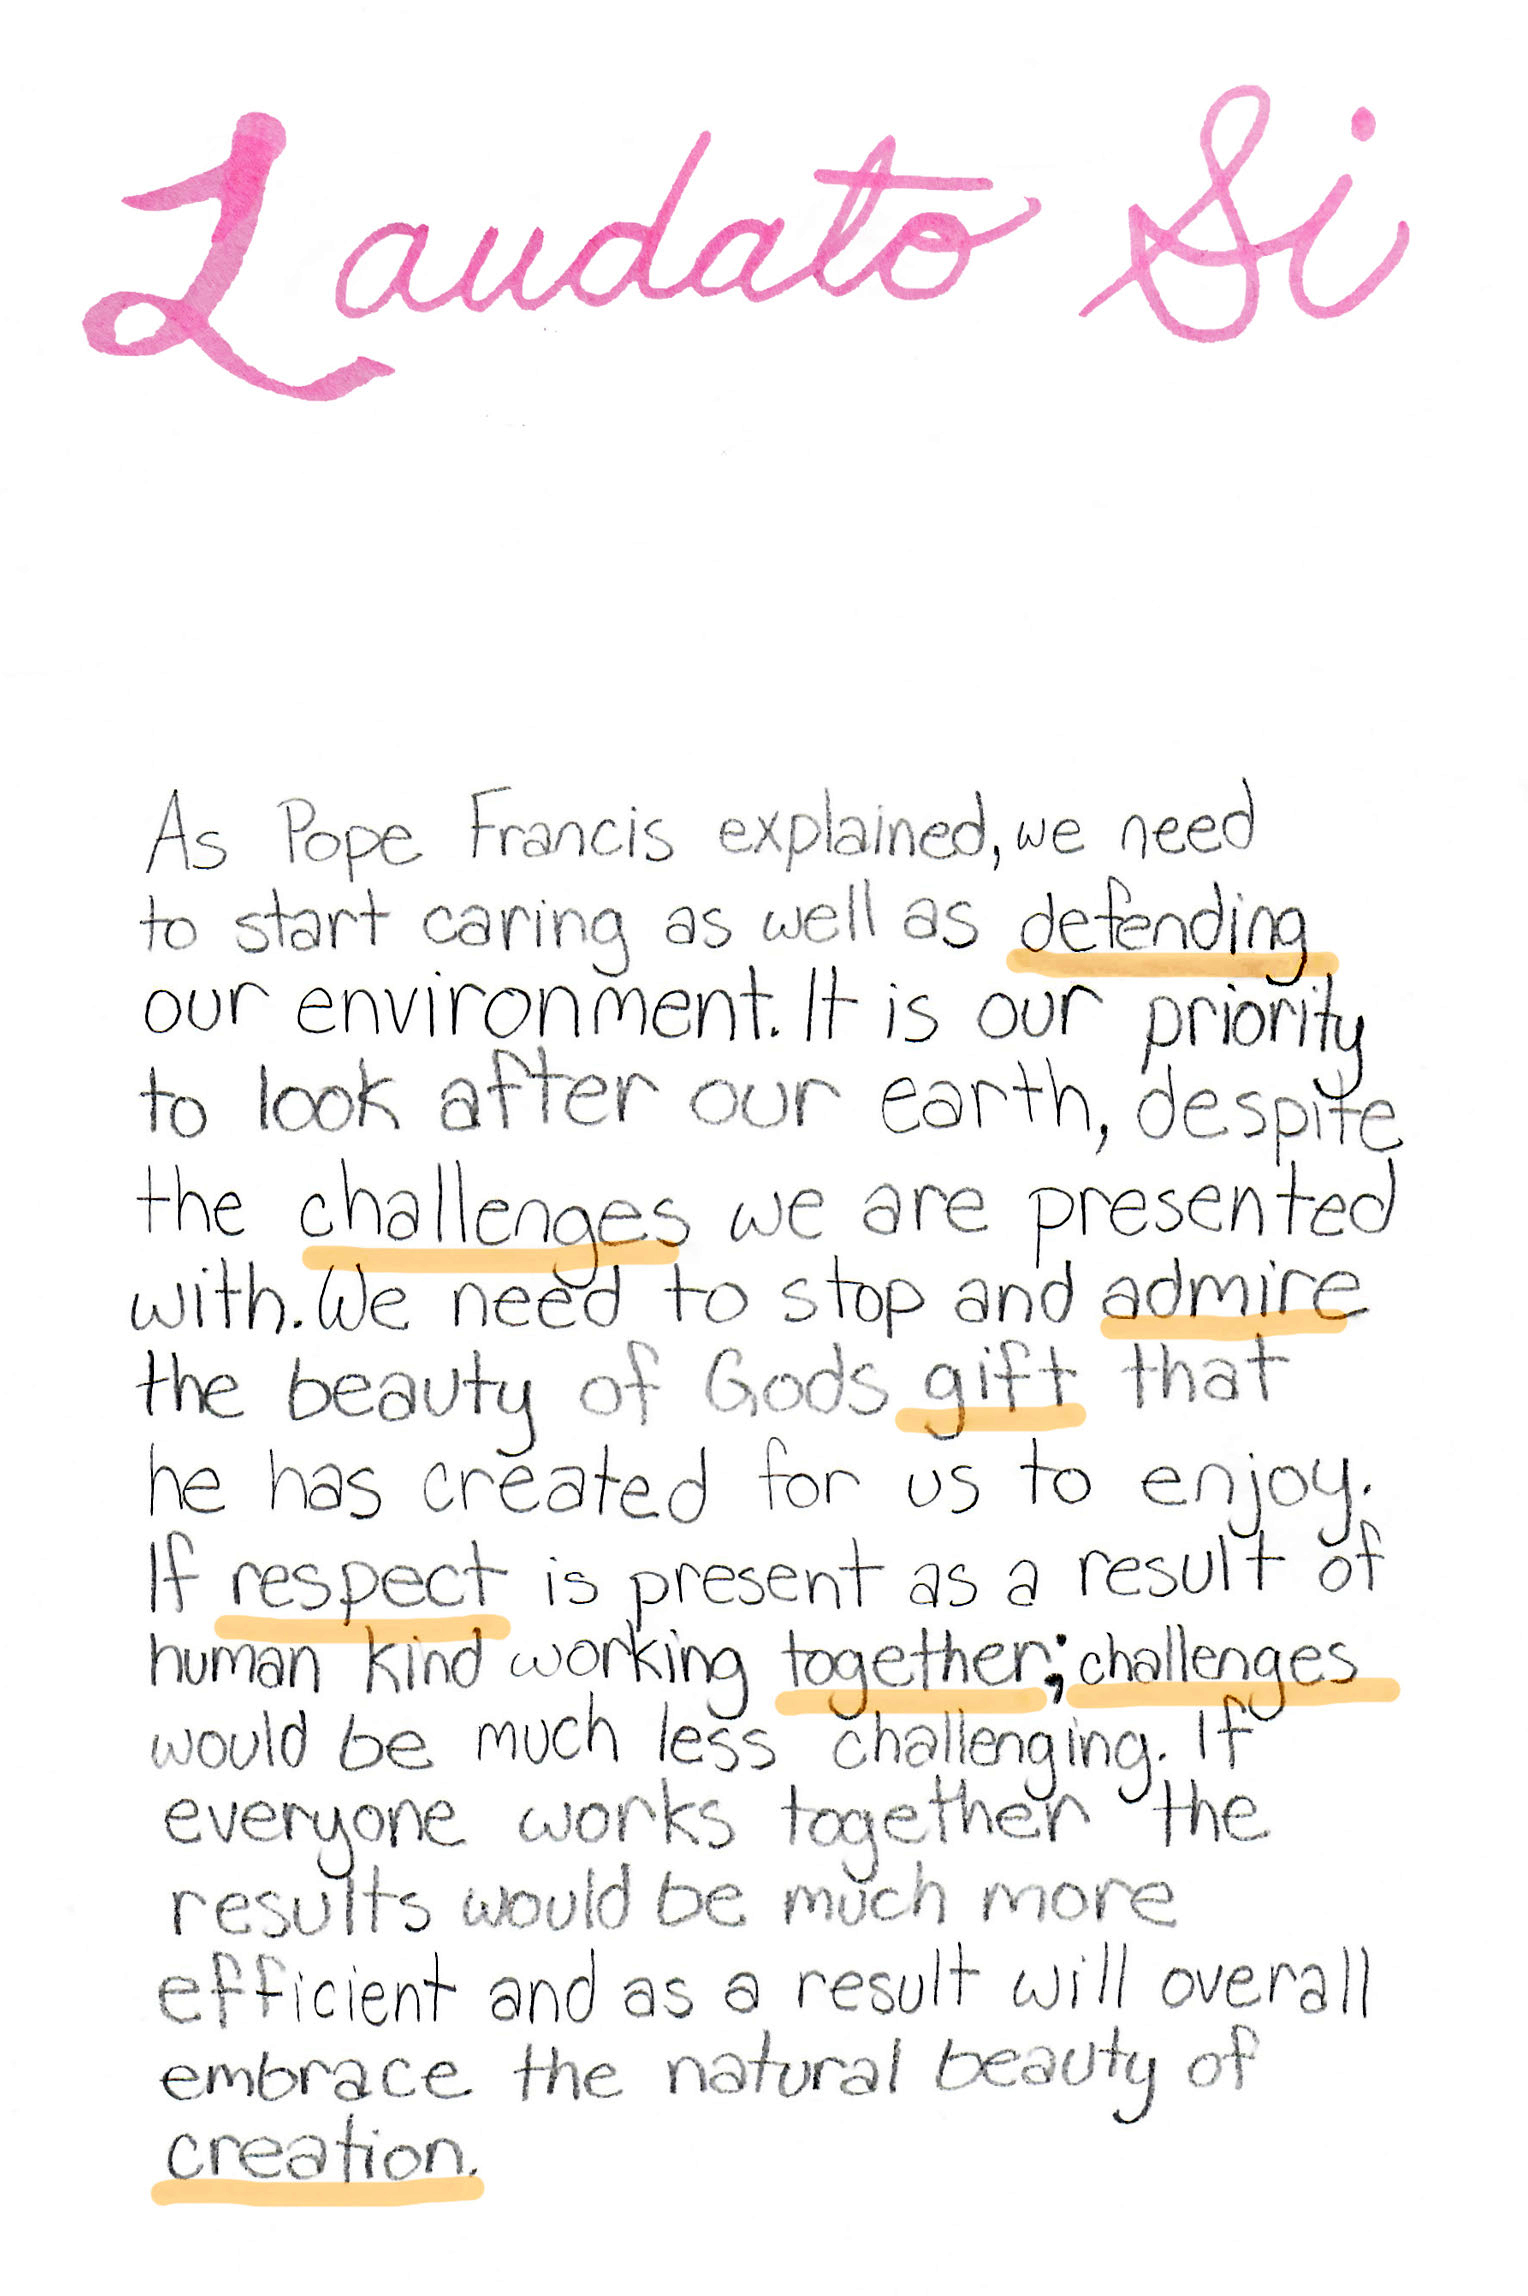 Laudato Si
As Pope Francis explained, we need
to start caring as well as defending
our environment. It is our priority
to look after our earth, despite
the challenges we are presented
with. We need to stop and admire
the beauty of Gods gift that
he has created for us to enjoy.
If respect is present as a result of
human kind working together; challenges
would be much less challenging. If
everyone works together the
results would be much more
efficient and as a result will overall
embrace the natural beauty of
creation.